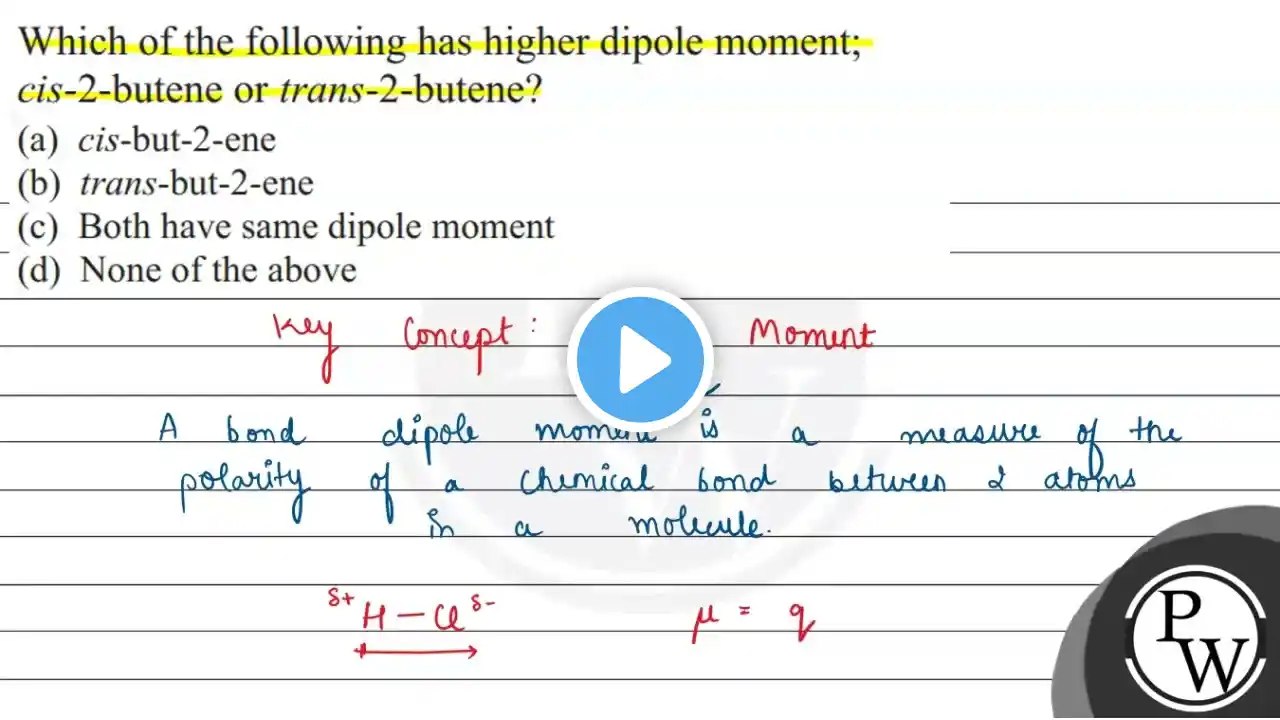 Which of the following has higher dipole moment;
cis-2-butene or trans-2-butene?
(a) cis-but-2-ene
(b) trans-but-2-ene
(c) Both have same dipole moment
(d) None of the above
Key Concept: Moment
A bond dipole moment is a measure of the
polarity of a chemical bond between 2 atoms
in a molecule.
δ+ H – Cl δ-
μ = q
P
W